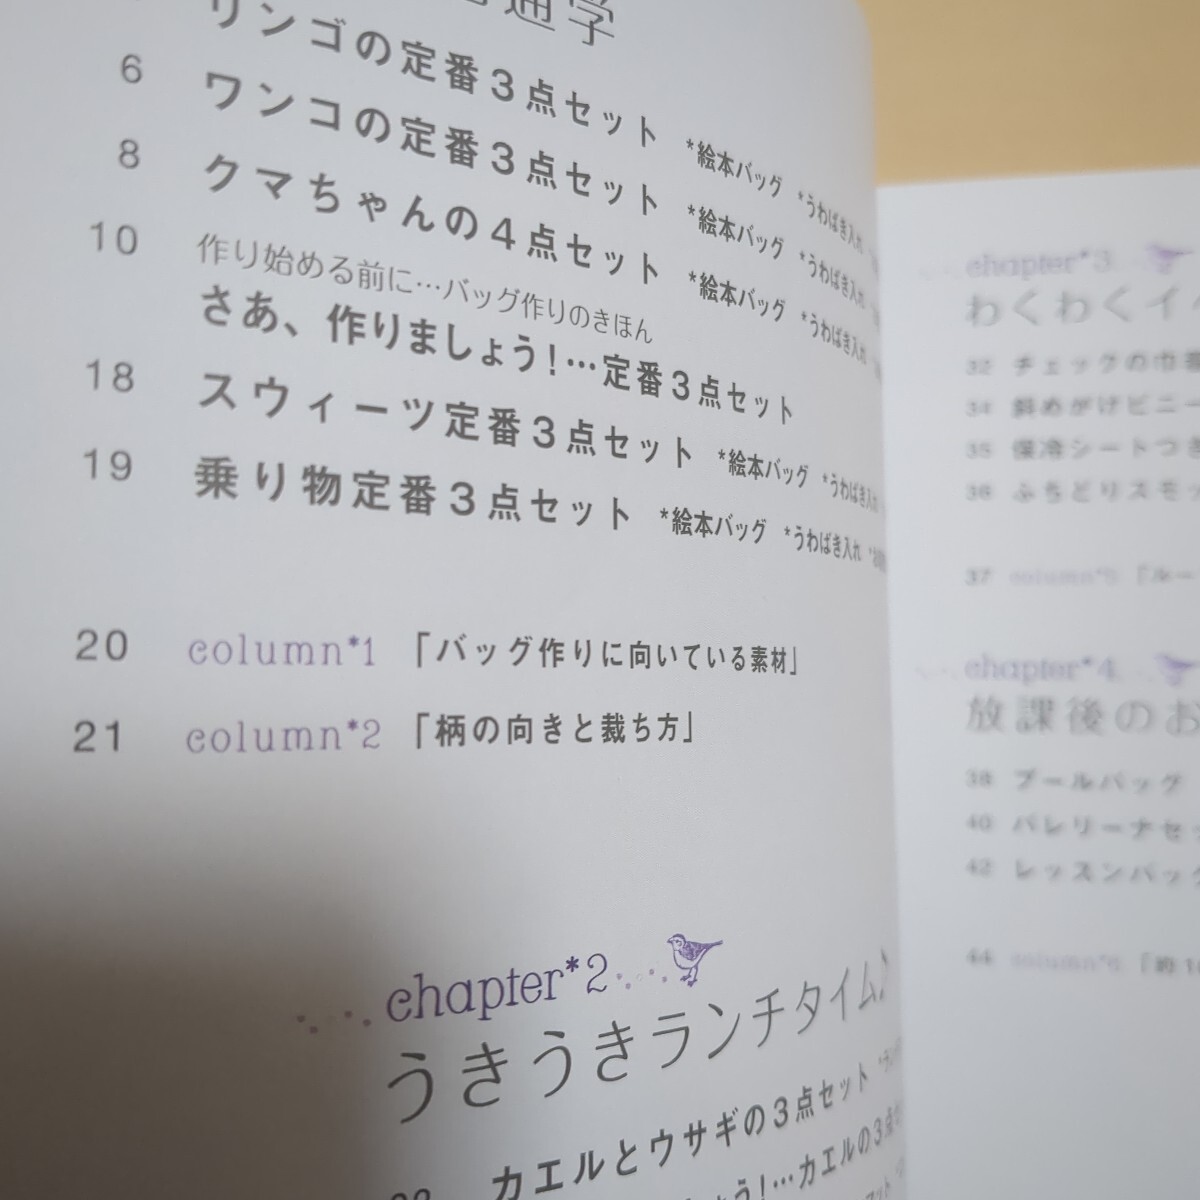 通学
リンゴの定番3点セット *絵本バッグ *うわばき入れ
6 ワンコの定番3点セット *絵本バッグ *うわばき入れ
8 クマちゃんの4点セット *絵本バッグ *うわばき入れ
10 作り始める前に…バッグ作りのきほん
さあ、作りましょう!…定番3点セット
18 スウィーツ定番3点セット *絵本バッグ *うわばき入れ
19 乗り物定番3点セット *絵本バッグ *うわばき入れ
20 column*1 「バッグ作りに向いている素材」
21 column*2 「柄の向きと裁ち方」
chapter*2
うきうきランチタイム♪
カエルとウサギの3点セット
う!…カエルの3点
chapter*3
わくわくイ
32 チェックの巾着
34 斜めがけビニー
35 保冷シートつき
36 ふちどりスモッ
37 column*5 「ルー
chapter*4
放課後のお
38 プールバッグ
40 バレリーナセッ
42 レッスンバッグ
44 column*6 「約10